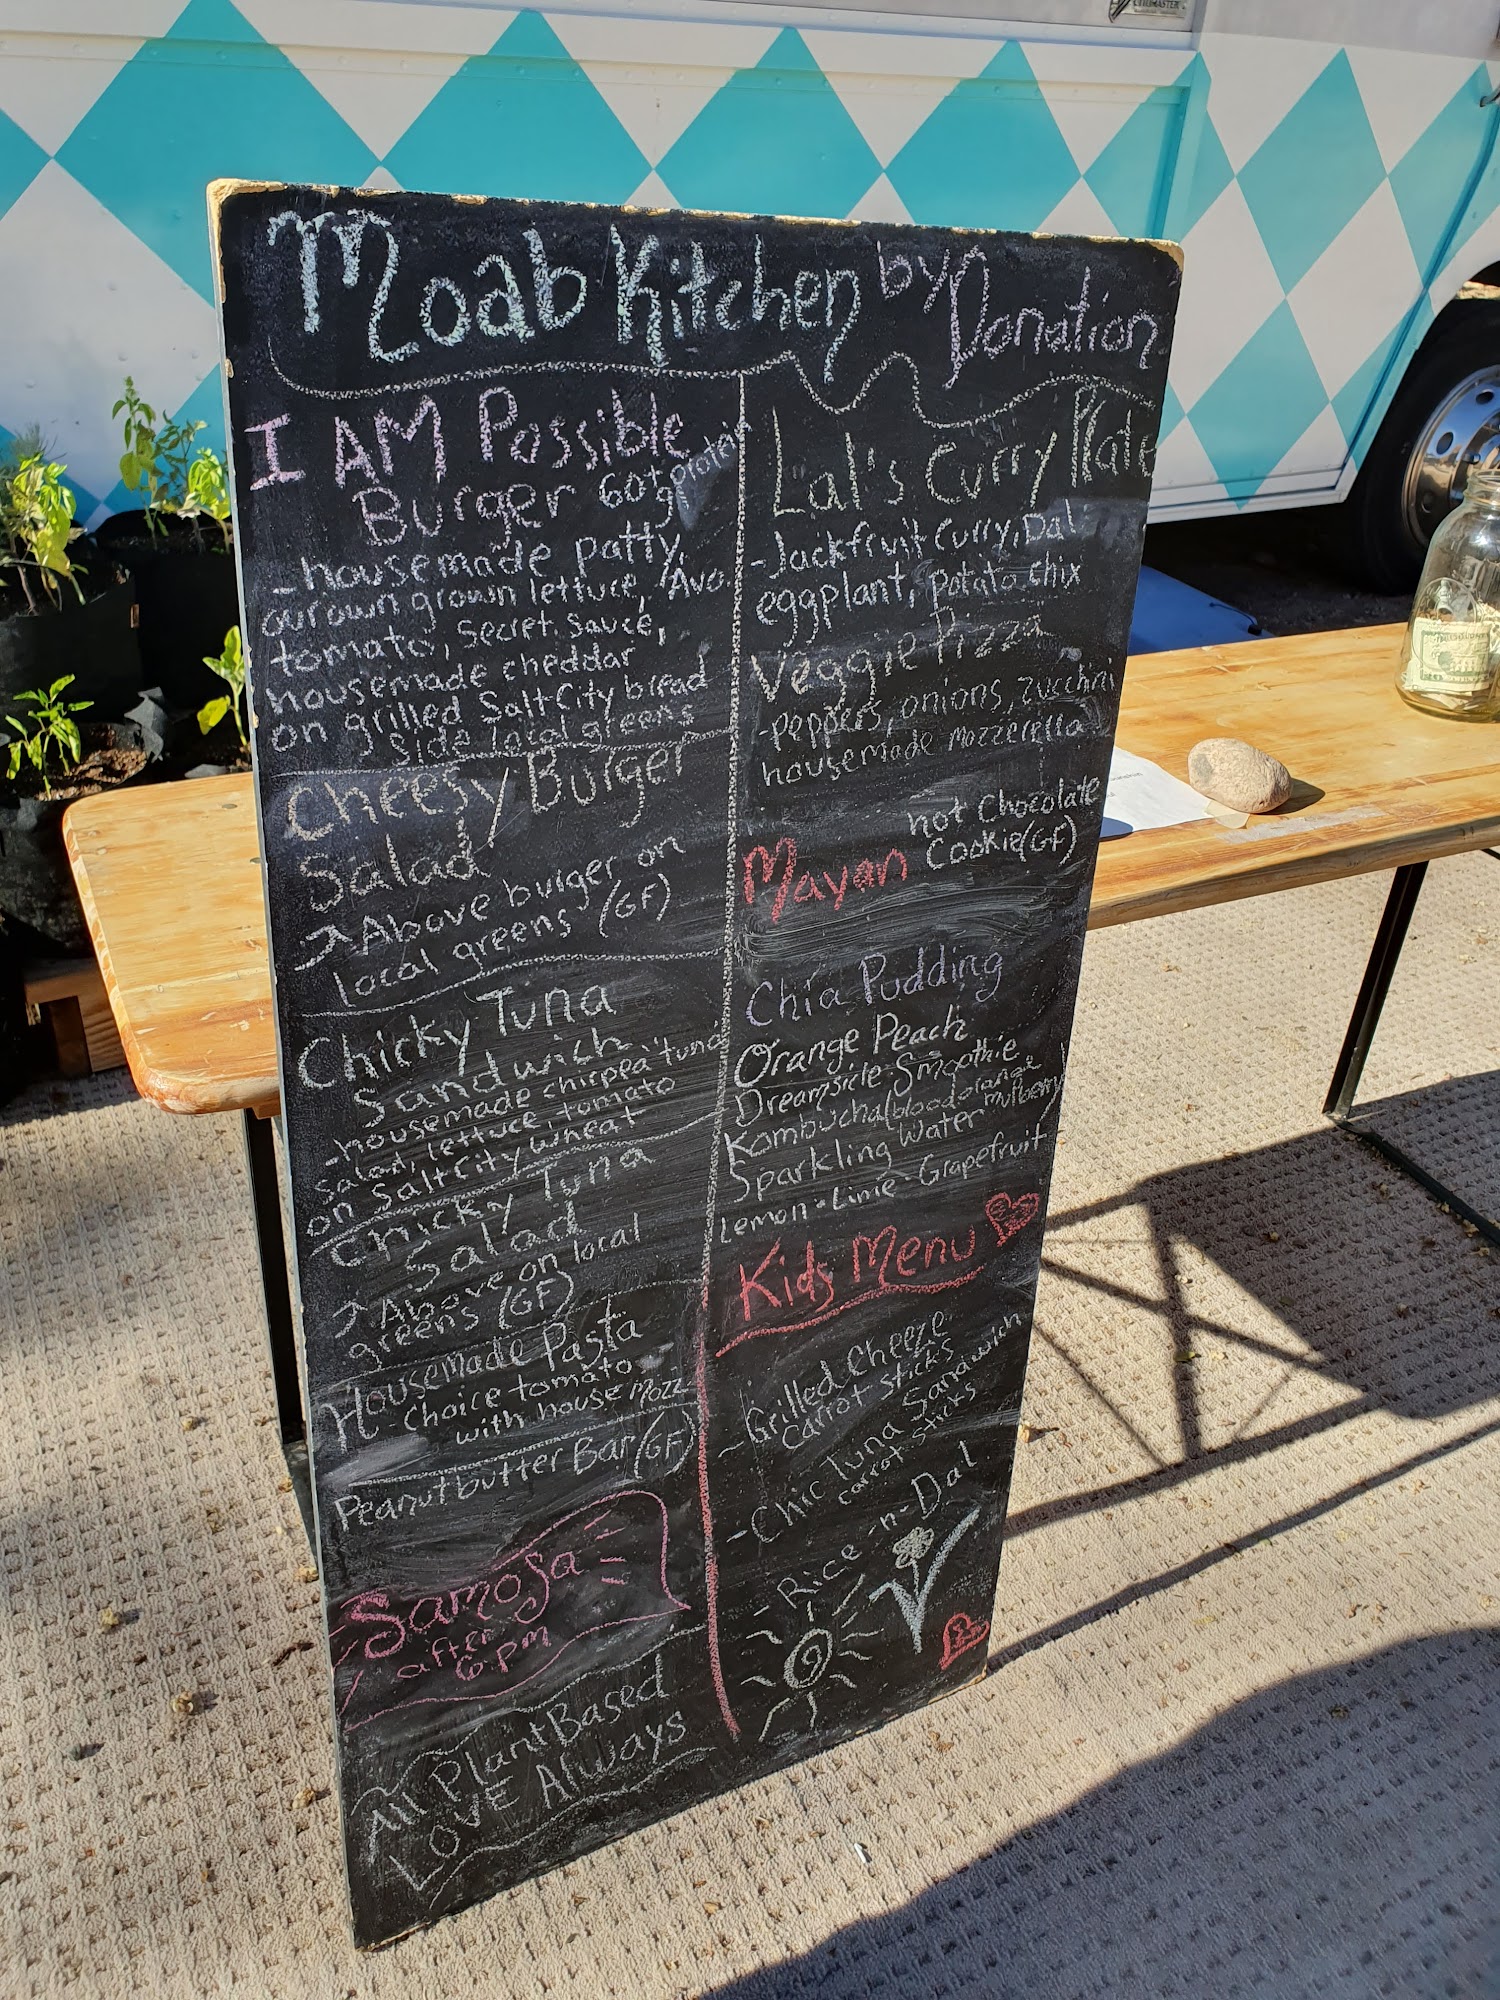 Moab Kitchen by Donation
I AM Possible
Burger 60+g protein
- housemade patty,
our own grown lettuce, Avo.
tomato, secret sauce,
housemade cheddar
on grilled Salt City bread
side local greens
Cheesy Burger
Salad
Above burger on
local greens (GF)
Chicky Tuna
Sandwich
- housemade chicpea "tuna"
salad, lettuce, tomato
on Salt City wheat
Chicky Tuna
Salad
Above on local
greens (GF)
Housemade Pasta
- Choice tomato
with house Mozz
Peanutbutter Bar (GF)
Samosa
after
6 pm
All Plant Based
LOVE Always
Lal's Curry Plate
- Jackfruit Curry, Dal
eggplant, potato chix
Veggie Pizza
- peppers, onions, zucchini
housemade mozzerella
Mayan hot Chocolate
Cookie (GF)
Chia Pudding
Orange Peach
Dreamsicle Smoothie
Kombucha (blood orange
mulberry)
Sparkling Water
Lemon-Lime-Grapefruit
Kids Menu
- Grilled Cheeze
carrot sticks
- Chic Tuna Sandwich
carrot sticks
- Rice -n- Dal